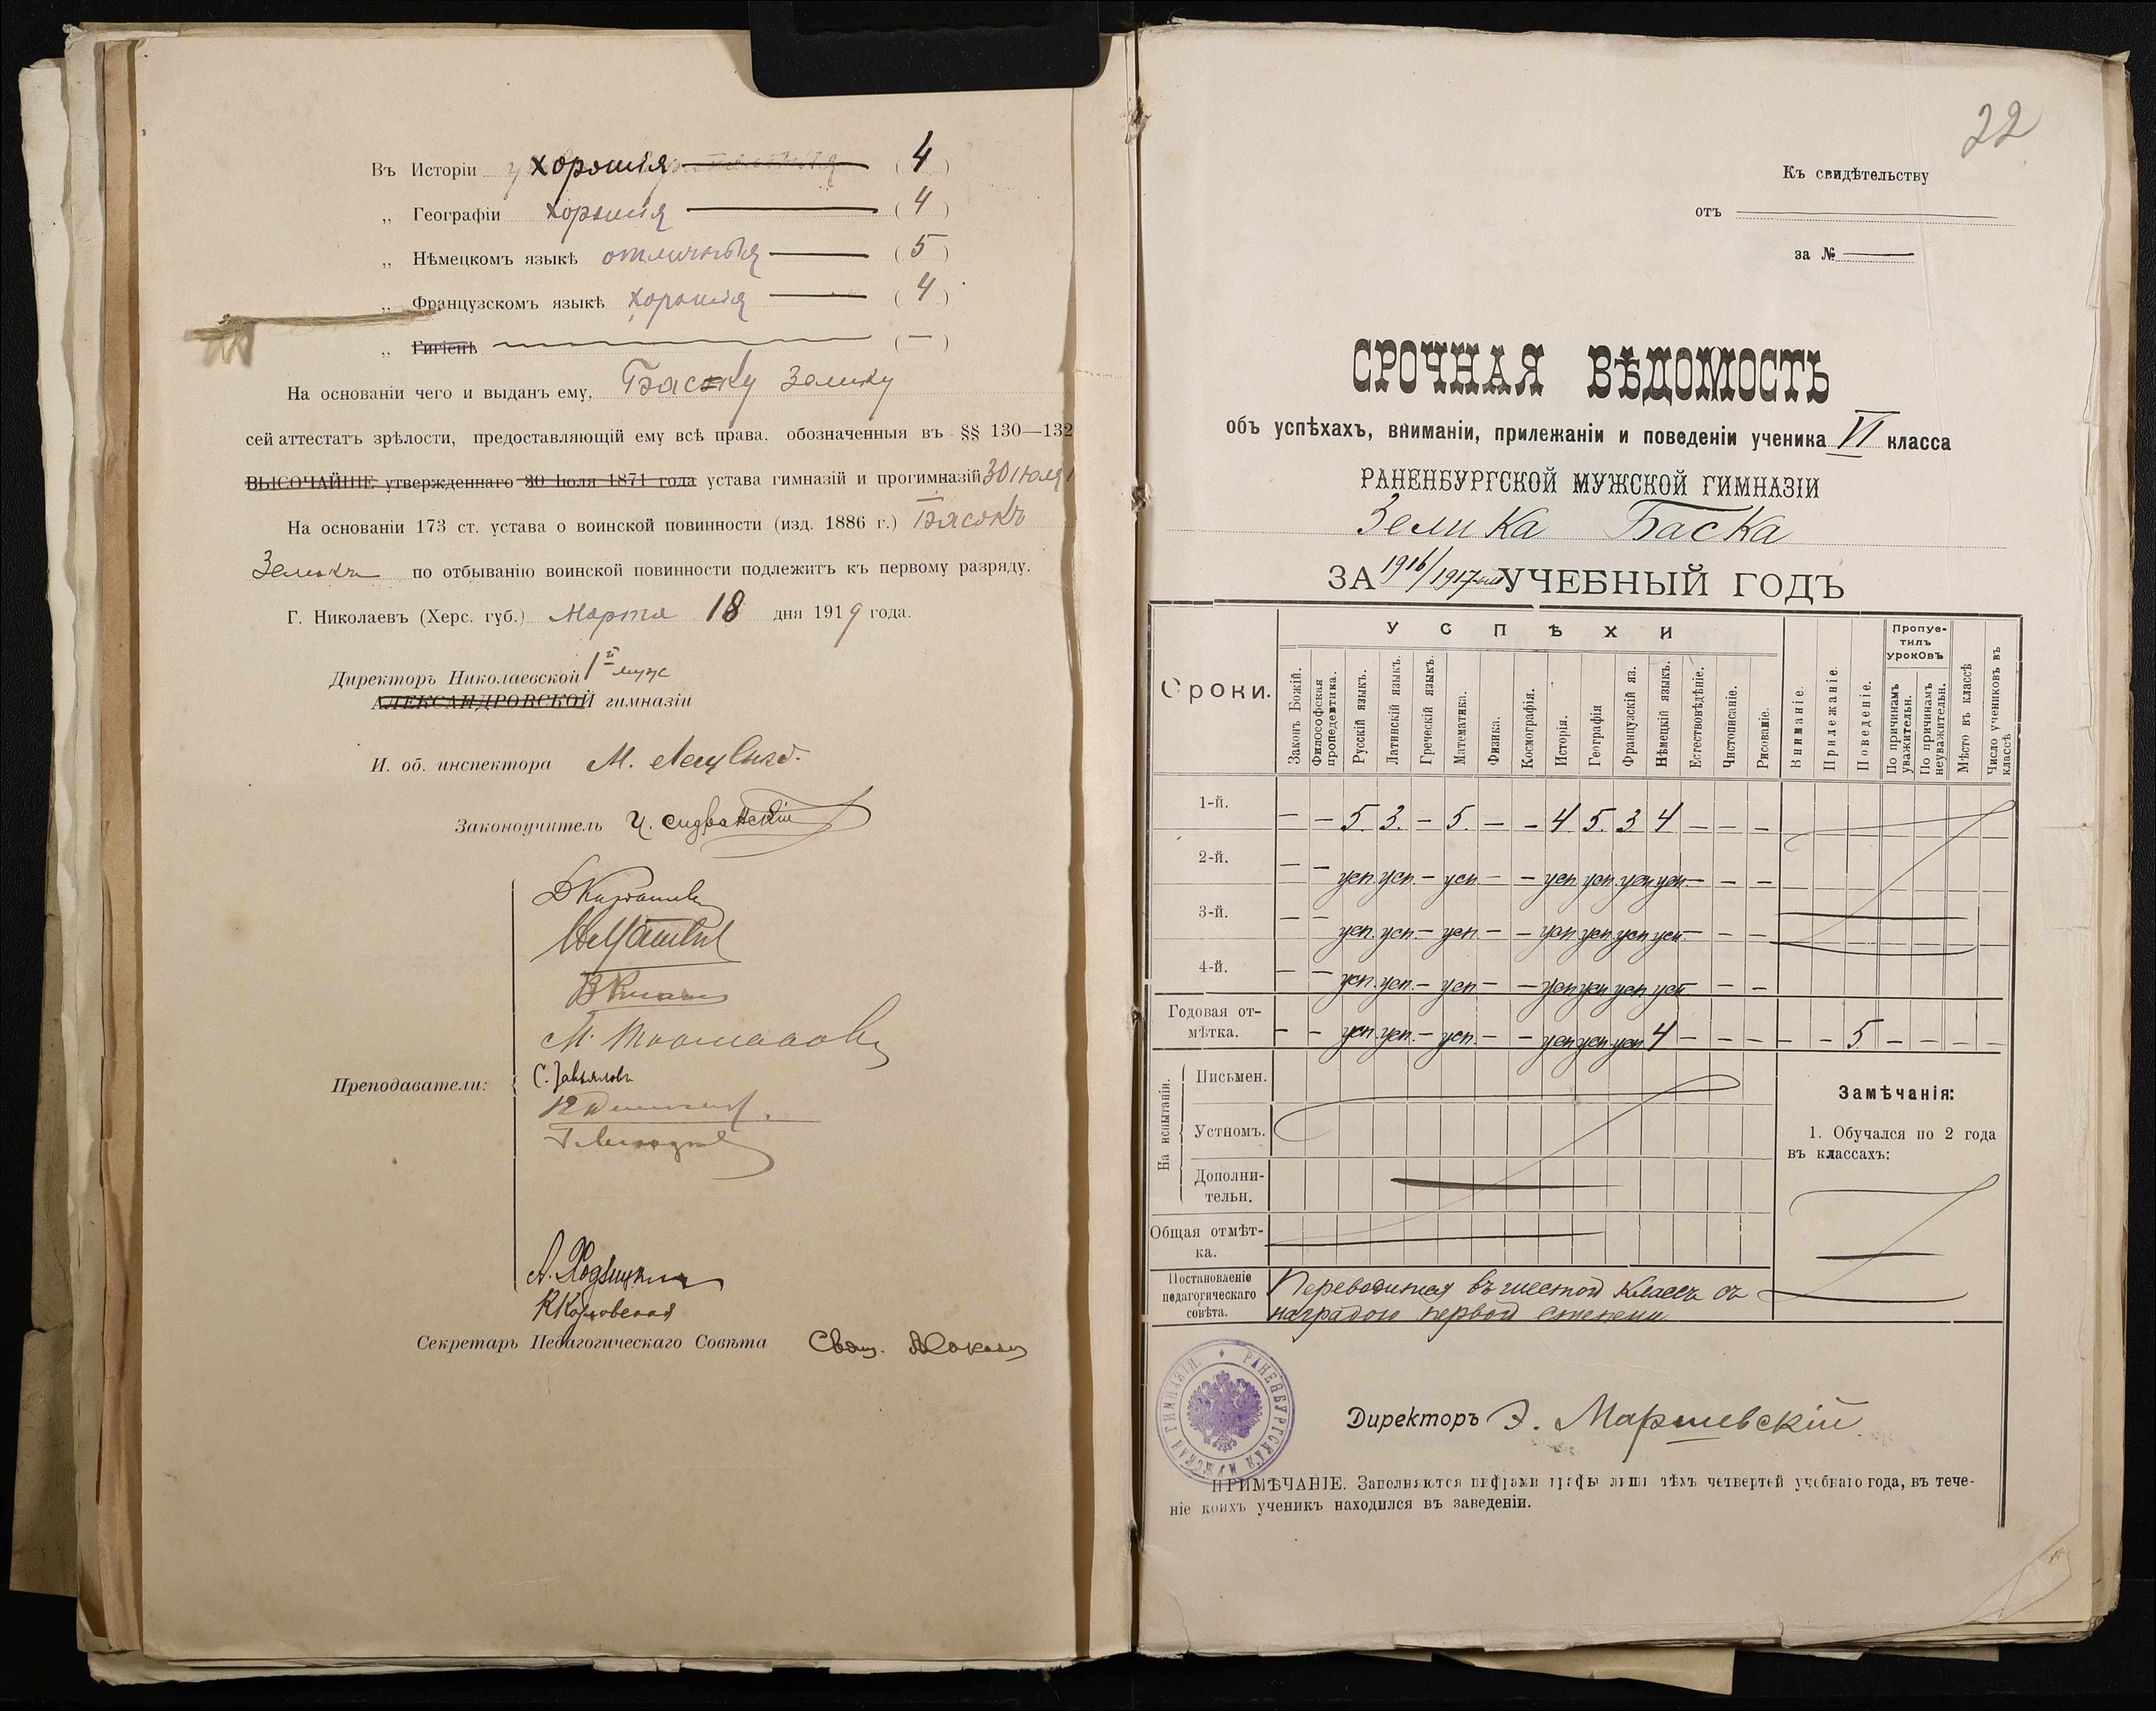 Въ Исторіи хорошія (4)
„ Географіи хорошія (4)
„ Нѣмецкомъ языкѣ отличныя (5)
„ Французскомъ языкѣ хорошія (4)
„ Гигіенѣ (—)
На основаніи чего и выданъ ему, Баску Зелику
сей аттестатъ зрѣлости, предоставляющій ему всѣ права, обозначенныя въ §§ 130—132
ВЫСОЧАЙШЕ утвержденнаго 30 Іюля 1871 года устава гимназій и прогимназій 30 Іюля
На основаніи 173 ст. устава о воинской повинности (изд. 1886 г.) Баскъ
Зеликъ по отбыванію воинской повинности подлежитъ къ первому разряду.
Г. Николаевъ (Херс. губ.) Марта 18 дня 1919 года.
Директоръ Николаевской 1й муж
АЛЕКСАНДРОВСКОЙ гимназіи
И. об. инспектора М.
Законоучитель
Преподаватели:
С. Завьяловъ
Секретарь Педагогическаго Совѣта Свящ.
22
Къ свидѣтельству
отъ
за №
СРОЧНАЯ ВѢДОМОСТЬ
объ успѣхахъ, вниманіи, прилежаніи и поведеніи ученика VI класса
РАНЕНБУРГСКОЙ МУЖСКОЙ ГИМНАЗІИ
Зелика Баска
ЗА 1916/1917-ый УЧЕБНЫЙ ГОДЪ
Сроки.
УСПѢХИ
Законъ Божій.
Философская пропедевтика.
Русскій языкъ.
Латинскій языкъ.
Греческій языкъ.
Математика.
Физика.
Космографія.
Исторія.
Географія
Французскій яз.
Нѣмецкій языкъ.
Естествовѣдѣніе.
Чистописаніе.
Рисованіе.
Вниманіе.
Прилежаніе.
Поведеніе.
Пропустилъ уроковъ
По причинамъ уважительн.
По причинамъ неуважительн.
Мѣсто въ классѣ
Число учениковъ въ классѣ
1-й. — — 5. 3. — 5. — — 4. 5. 3 4 — — —
2-й. — — усп. усп. — усп — — усп усп усп усп. — — —
3-й. — — усп. усп — усп. — — усп усп. усп усп. — — —
4-й. — — усп. усп. — усп — — усп усп усп усп — — —
Годовая отмѣтка. — — усп. усп. — усп. — — усп усп. усп 4 — — — — — 5 — — — —
На испытаніи.
Письмен.
Устномъ.
Дополнительн.
Общая отмѣтка.
Замѣчанія:
1. Обучался по 2 года
въ классахъ:
Постановленіе педагогическаго совѣта.
Переводится въ шестой классъ съ
наградою первой степени
РАНЕНБУРГСКАЯ МУЖСКАЯ ГИМНАЗІЯ.
Директоръ Э. Маршевскій.
ПРИМѢЧАНІЕ. Заполняются цифрами графы лишь тѣхъ четвертей учебнаго года, въ тече-
ніе коихъ ученикъ находился въ заведеніи.